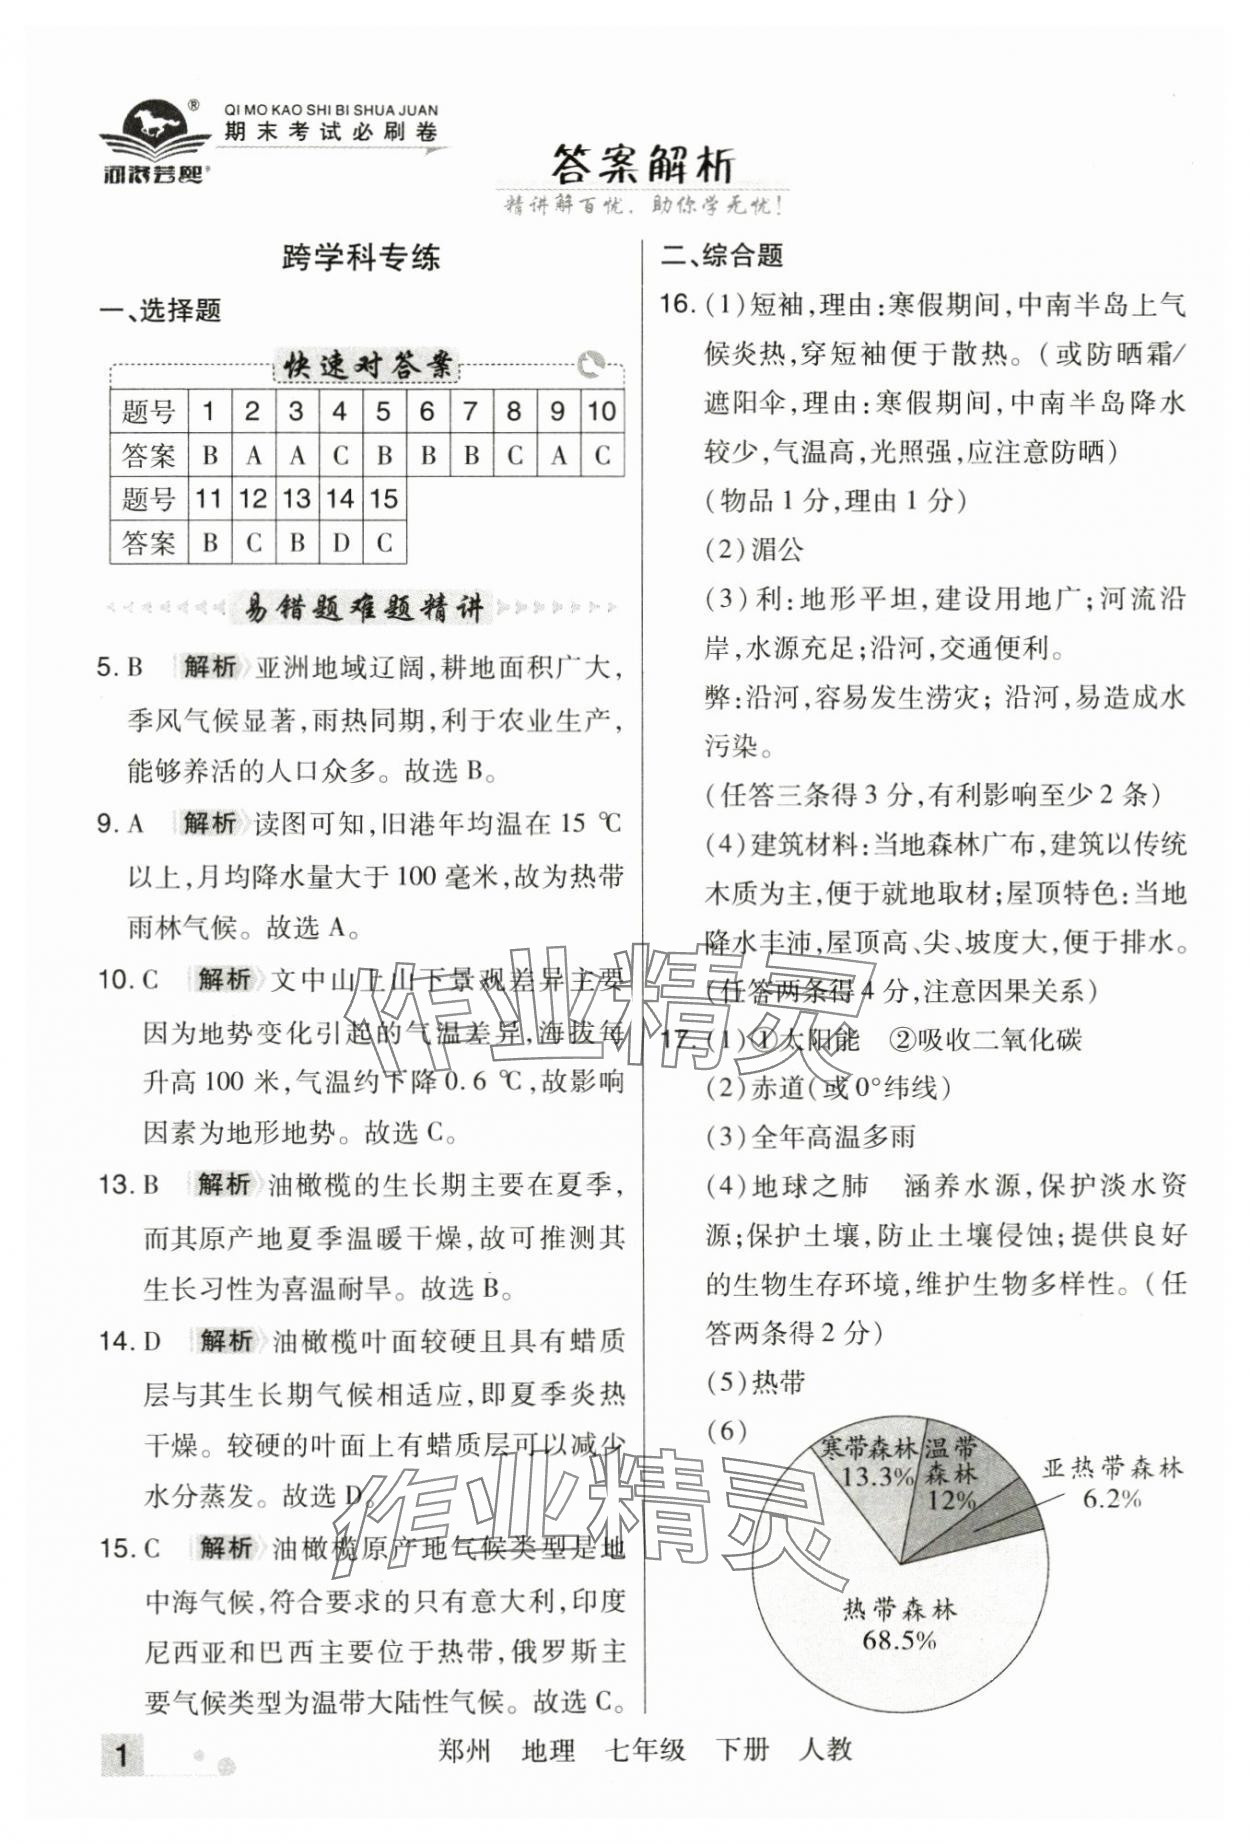 QI MO KAO SHI BI SHUA JUAN
期末考试必刷卷
®
河洛芸熙
答案解析
精讲解百忧,助你学无忧!
跨学科专练
一、选择题
快速对答案
题号 1 2 3 4 5 6 7 8 9 10
答案 B A A C B B B C A C
题号 11 12 13 14 15
答案 B C B D C
易错题难题精讲
5. B 解析 亚洲地域辽阔,耕地面积广大,
季风气候显著,雨热同期,利于农业生产,
能够养活的人口众多。故选 B。
9. A 解析 读图可知,旧港年均温在 15 ℃
以上,月均降水量大于 100 毫米,故为热带
雨林气候。故选 A。
10. C 解析 文中山上山下景观差异主要
因为地势变化引起的气温差异,海拔每
升高 100 米,气温约下降 0.6 ℃,故影响
因素为地形地势。故选 C。
13. B 解析 油橄榄的生长期主要在夏季,
而其原产地夏季温暖干燥,故可推测其
生长习性为喜温耐旱。故选 B。
14. D 解析 油橄榄叶面较硬且具有蜡质
层与其生长期气候相适应,即夏季炎热
干燥。较硬的叶面上有蜡质层可以减少
水分蒸发。故选 D。
15. C 解析 油橄榄原产地气候类型是地
中海气候,符合要求的只有意大利,印度
尼西亚和巴西主要位于热带,俄罗斯主
要气候类型为温带大陆性气候。故选 C。
二、综合题
16. (1)短袖,理由:寒假期间,中南半岛上气
候炎热,穿短袖便于散热。(或防晒霜/
遮阳伞,理由:寒假期间,中南半岛降水
较少,气温高,光照强,应注意防晒)
(物品 1 分,理由 1 分)
(2)湄公
(3)利:地形平坦,建设用地广;河流沿
岸,水源充足;沿河,交通便利。
弊:沿河,容易发生涝灾;沿河,易造成水
污染。
(任答三条得 3 分,有利影响至少 2 条)
(4)建筑材料:当地森林广布,建筑以传统
木质为主,便于就地取材;屋顶特色:当地
降水丰沛,屋顶高、尖、坡度大,便于排水。
(任答两条得 4 分,注意因果关系)
17. (1)①太阳能 ②吸收二氧化碳
(2)赤道(或 0°纬线)
(3)全年高温多雨
(4)地球之肺 涵养水源,保护淡水资
源;保护土壤,防止土壤侵蚀;提供良好
的生物生存环境,维护生物多样性。(任
答两条得 2 分)
(5)热带
(6)
寒带森林
13.3%
温带
森林
12%
亚热带森林
6.2%
热带森林
68.5%
作业精灵
作业精灵
1
郑州 地理 七年级 下册 人教